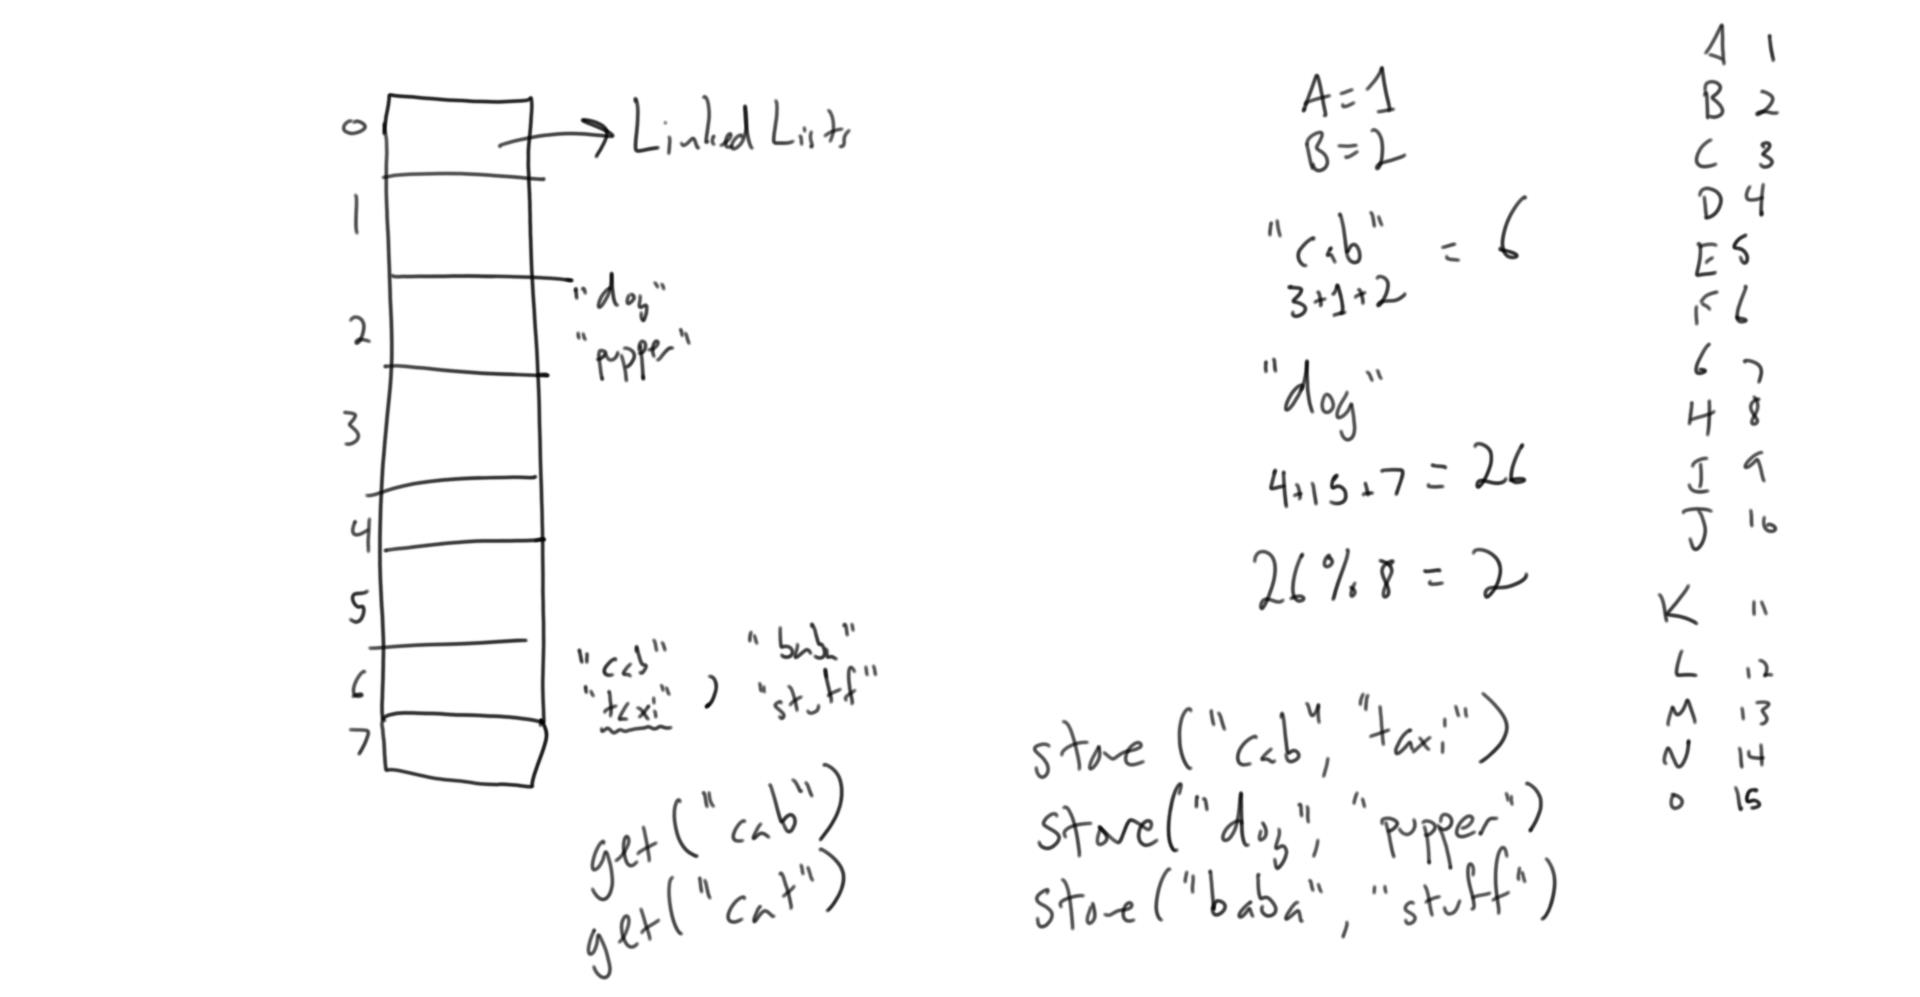 0
Linked Lists
1
2
"dog"
"pupper"
3
4
5
6
"cab" , "baba"
"taxi" "stuff"
7
get("cab")
get("cat")
A=1
B=2
"cab" = 6
3+1+2
"dog"
4+15+7 = 26
26%8 = 2
store ("cab", "taxi")
store("dog", "pupper")
store ("baba", "stuff")
A 1
B 2
C 3
D 4
E 5
F 6
G 7
H 8
I 9
J 10
K 11
L 12
M 13
N 14
O 15